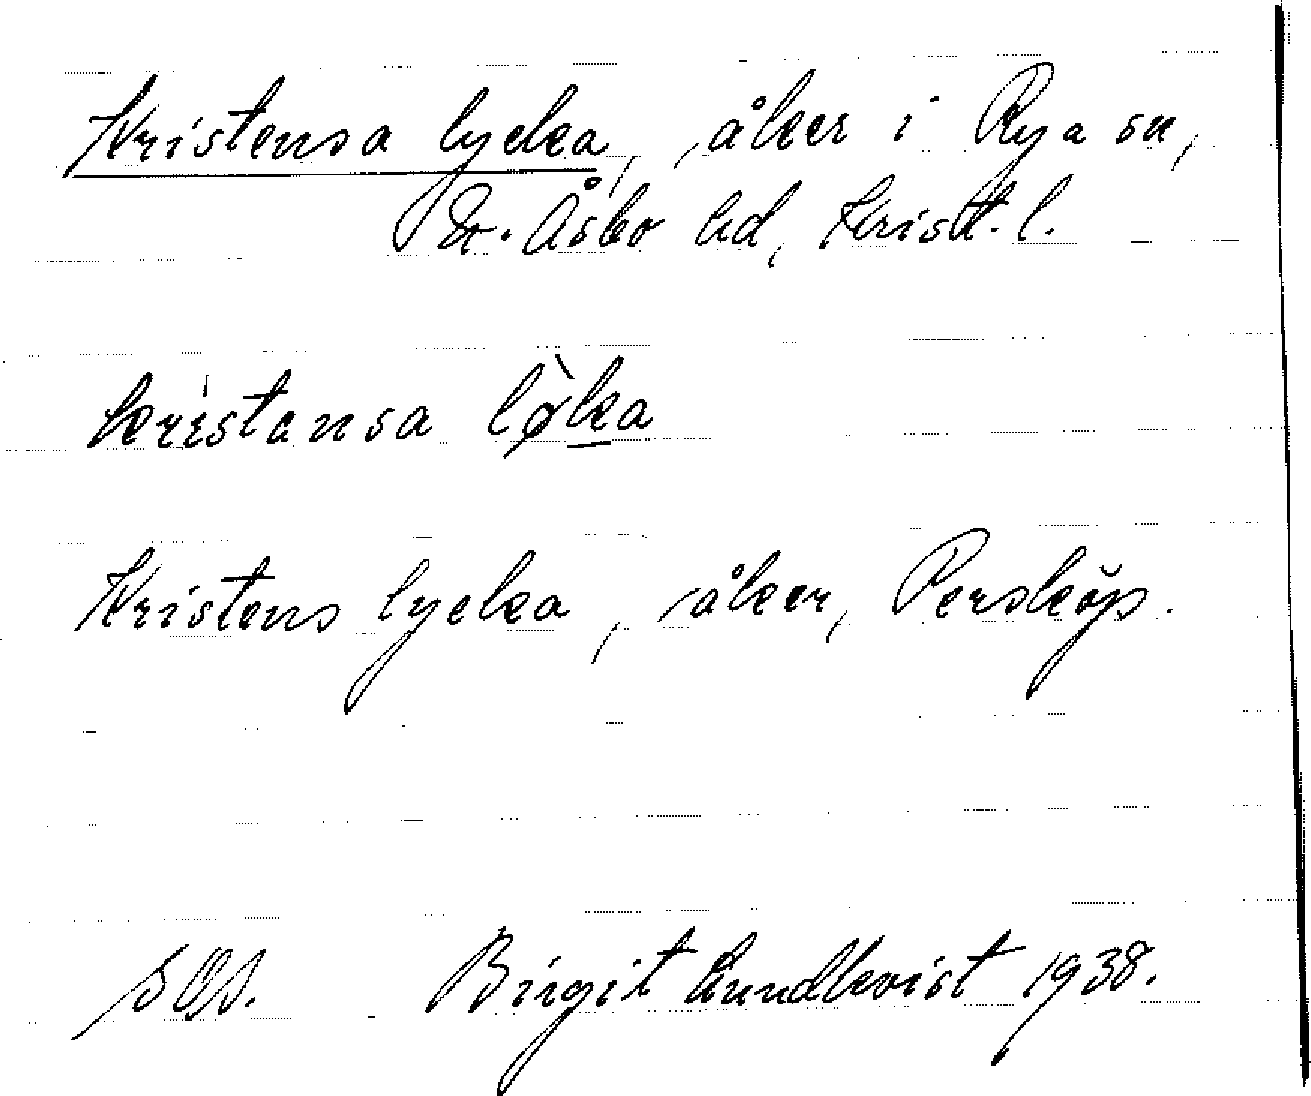 Kristensa lycka, åker i Rya sn,
N. Åsbo hd, Krist. l.
kristansa lø̀ka
Kristens lycka, åker, Perskôp.
SOS. Birgit Lundkvist 1938.